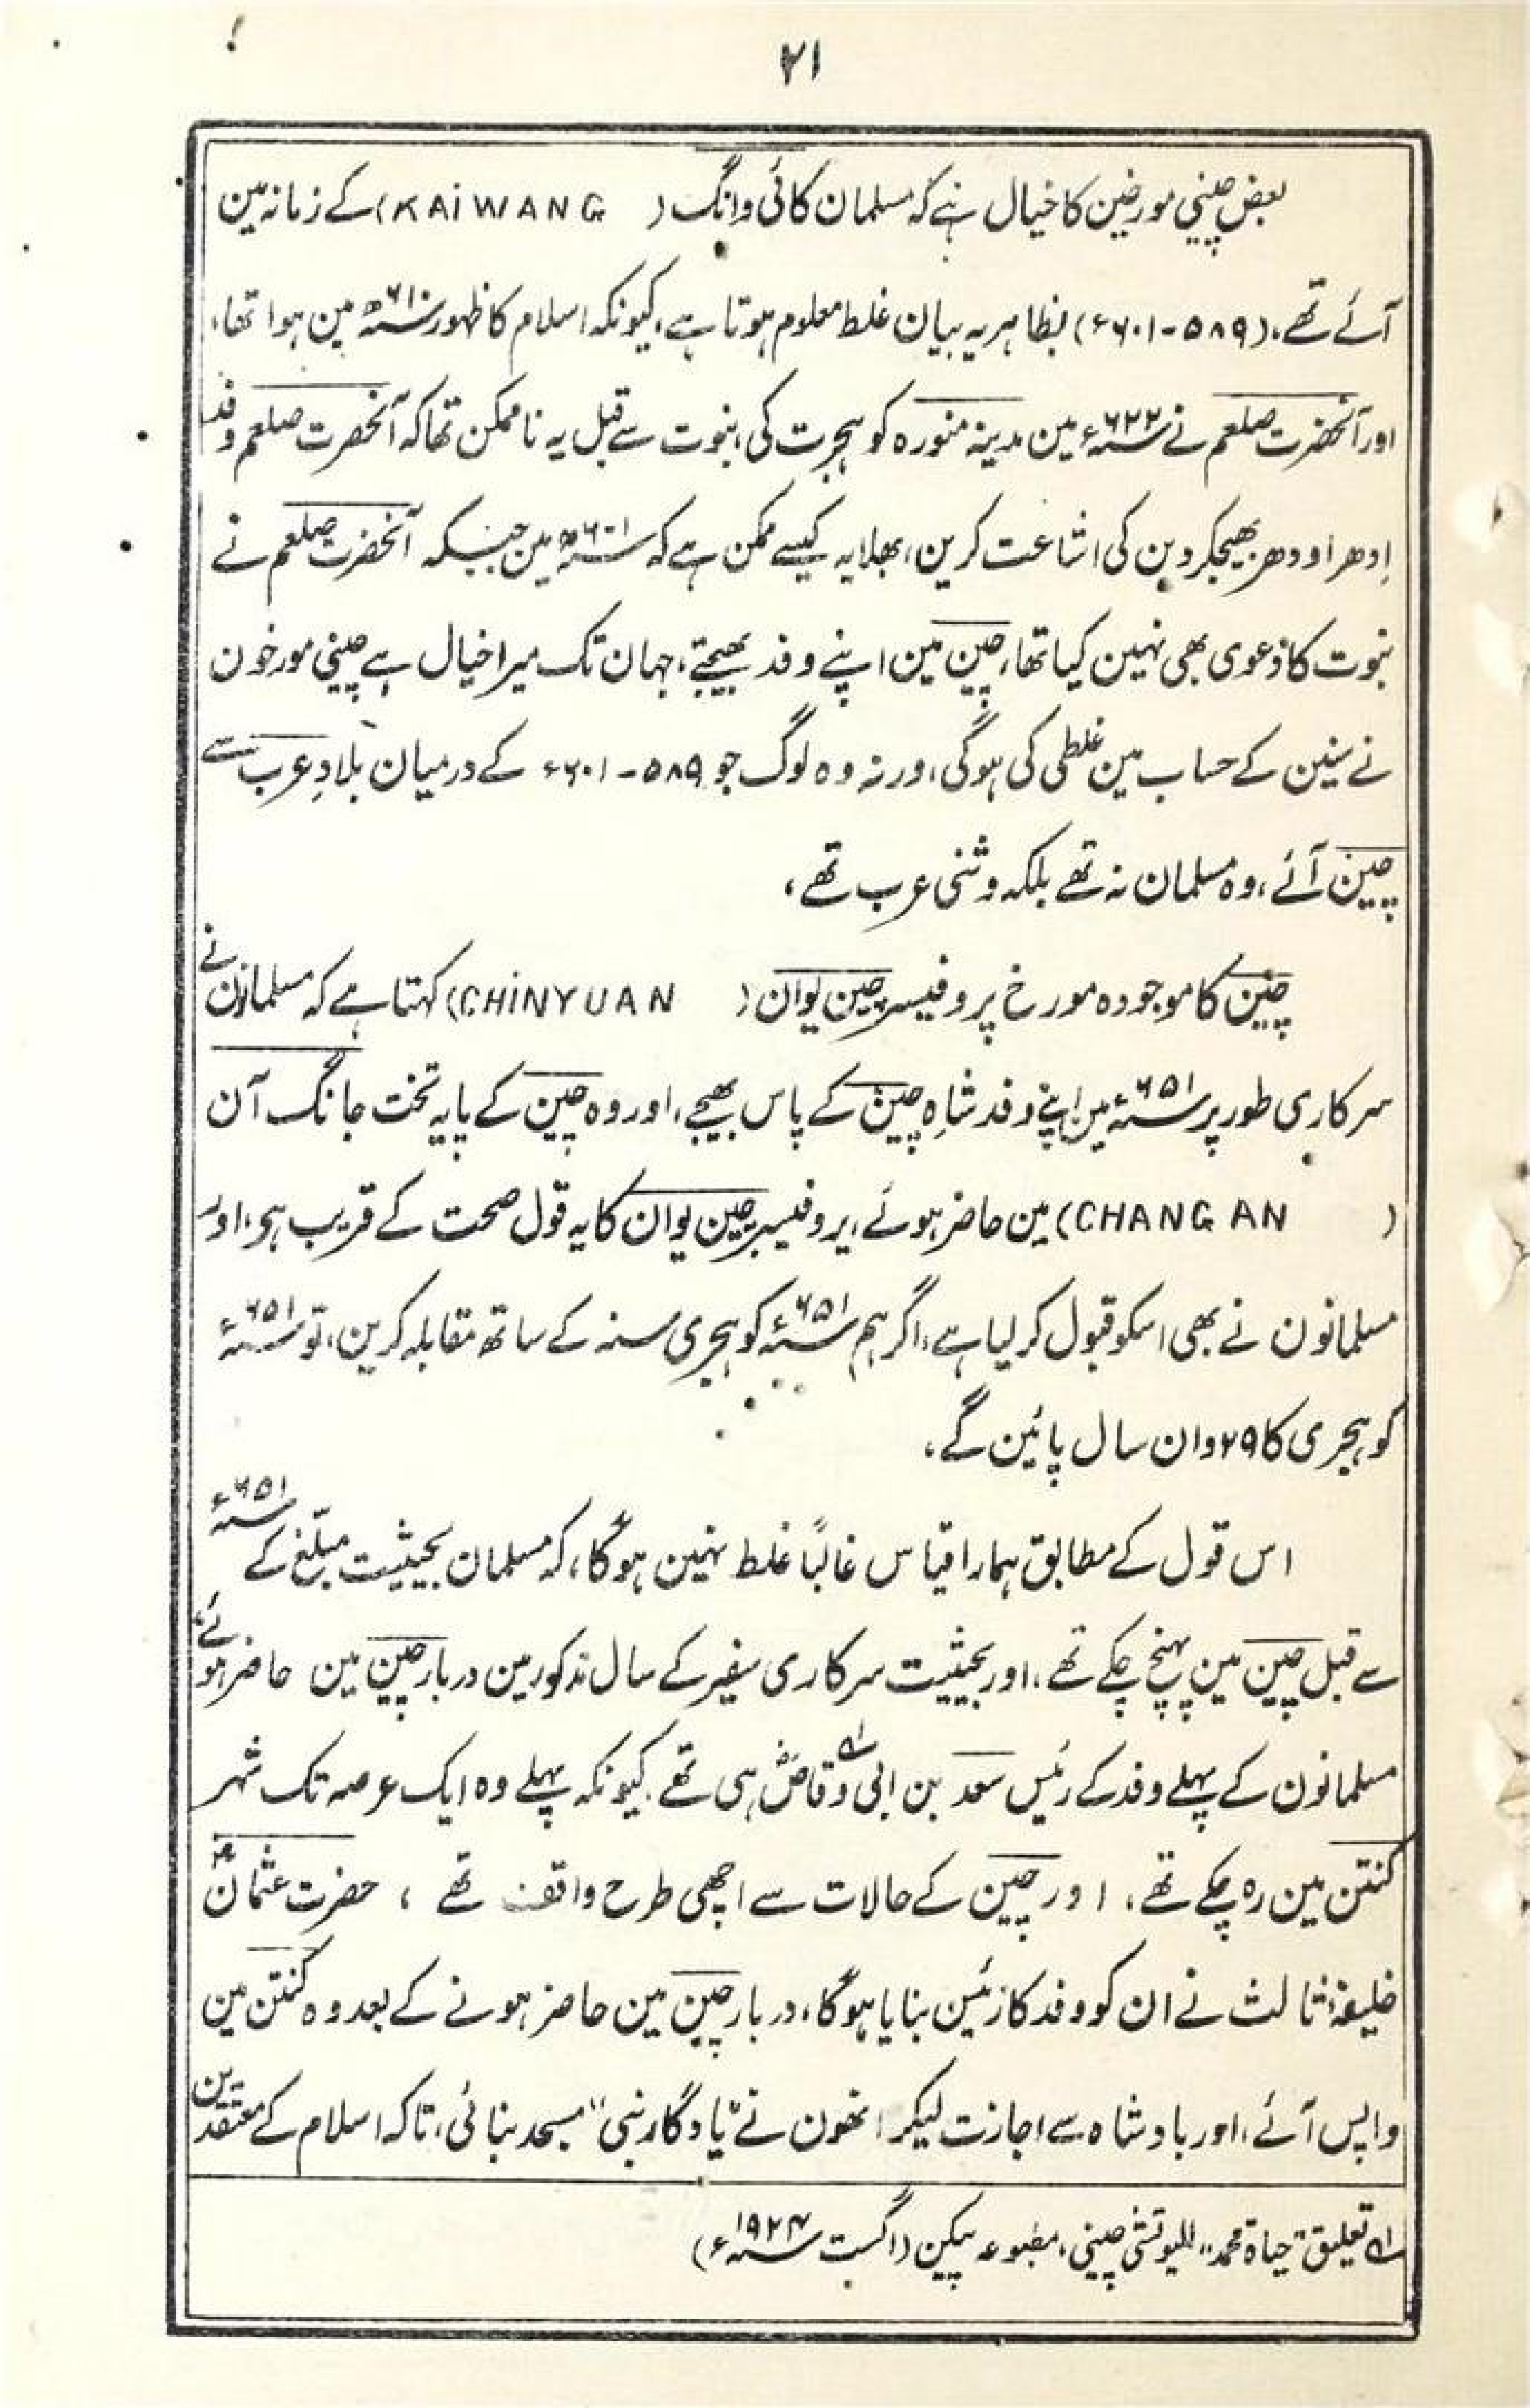 ۲۱
بعض چینی مورخین کا خیال ہے کہ مسلمان کائی وانگ (KAiWANG) کے زمانہ مین
آئے تھے، (۵۸۹-۶۰۱ء) بظاہر یہ بیان غلط معلوم ہوتا ہے، کیونکہ اسلام کا ظہور ۶۱۰ء مین ہوا تھا،
اور آنحضرت صلعم نے ۶۲۲ء مین مدینہ منورہ کو ہجرت کی، نبوت سے قبل یہ ناممکن تھا کہ آنحضرت صلعم وفد
اِدھر اودھر بھیجکر دین کی اشاعت کرین، بھلا یہ کیسے ممکن ہے کہ ۶۰۱ء مین جبکہ آنحضرت صلعم نے
نبوت کا دعوی بھی نہین کیا تھا، چین مین اپنے وفد بھیجتے، جہان تک میرا خیال ہے چینی مورخون
نے سنین کے حساب مین غلطی کی ہوگی، ورنہ وہ لوگ جو ۵۸۹-۶۰۱ء کے درمیان بلادِ عرب سے
چین آئے، وہ مسلمان نہ تھے بلکہ وثنی عرب تھے،
چین کا موجودہ مورخ پروفیسر چین یوان (CHiNYUAN) کہتا ہے کہ مسلمانون نے
سرکاری طور پر ۶۵۱ء مین اپنے وفد شاہِ چین کے پاس بھیجے، اور وہ چین کے پایہ تخت چانگ آن
(CHANG AN) مین حاضر ہوئے، پروفیسر چین یوان کا یہ قول صحت کے قریب ہو، اور
مسلمانون نے بھی اسکو قبول کر لیا ہے، اگر ہم ۶۵۱ء کو ہجری سنہ کے ساتھ مقابلہ کرین، تو ۶۵۱ء
کو ہجری کا ۲۹ وان سال پائین گے،
اس قول کے مطابق ہمارا قیاس غالباً غلط نہین ہوگا، کہ مسلمان بحیثیت مبلّغ کے ۶۵۱ء
سے قبل چین مین پہنچ چکے تھے، اور بحیثیت سرکاری سفیر کے سال مذکور مین دربار چین مین حاضر ہوئے،
مسلمانون کے پہلے وفد کے رئیس سعد بن ابی وقاصؓ ہی تھے کیونکہ پہلے وہ ایک عرصہ تک شہر
کنتن مین رہ چکے تھے، اور چین کے حالات سے اچھی طرح واقف تھے، حضرت عثمانؓ
خلیفۂ ثالث نے ان کو وفد کا رئیس بنایا ہوگا، دربار چین مین حاضر ہونے کے بعد وہ کنتن مین
واپس آئے، اور بادشاہ سے اجازت لیکر انھون نے "یادگار نبی" مسجد بنائی، تاکہ اسلام کے معتقدین
لہ تعلیق "حیاۃ محمد" للیوتشی چینی، مطبوعہ پیکین (اگست ۱۹۲۴ء)